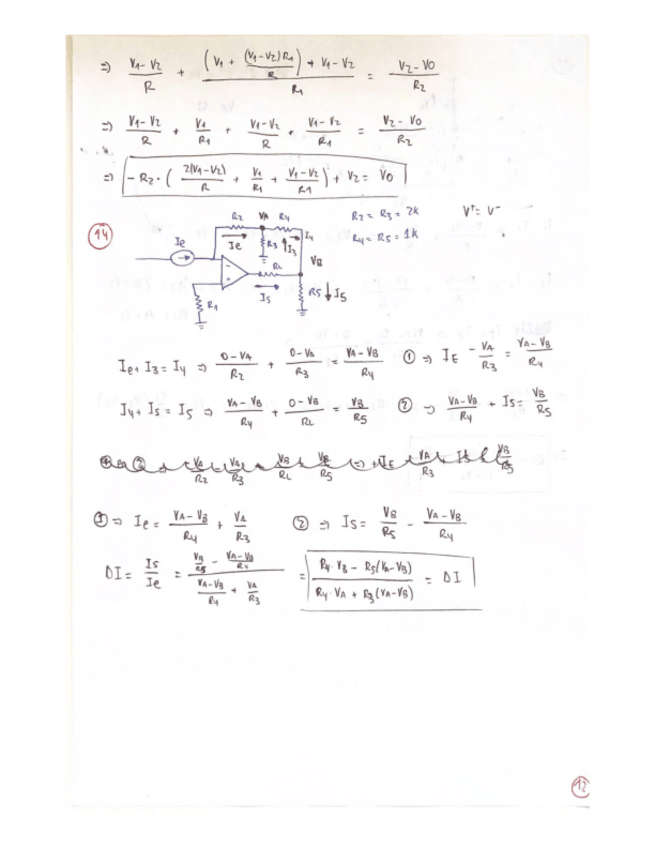 => (V1-V2)/R + ((V1 + (V1-V2)R1/R) + V1-V2)/R1 = (V2-V0)/R2
=> (V1-V2)/R + V1/R1 + (V1-V2)/R + (V1-V2)/R1 = (V2-V0)/R2
=> -R2·(2(V1-V2)/R + V1/R1 + (V1-V2)/R1) + V2 = V0
14
R2 VA R4
Ie Ie R3 I3 I4
- + RL VB
R1 Is R5 I5
R2 = R3 = 2K V+ = V-
R4 = R5 = 1K
Ie + I3 = I4 => (0-VA)/R2 + (0-VA)/R3 = (VA-VB)/R4 ① => IE - VA/R3 = (VA-VB)/R4
I4 + Is = I5 => (VA-VB)/R4 + (0-VB)/RL = VB/R5 ② => (VA-VB)/R4 + Is = VB/R5
① => Ie = (VA-VB)/R4 + VA/R3 ② => Is = VB/R5 - (VA-VB)/R4
DI = Is/Ie = (VB/R5 - (VA-VB)/R4)/((VA-VB)/R4 + VA/R3) = (R4·VB - R5(VA-VB))/(R4·VA + R3(VA-VB)) = DI
12